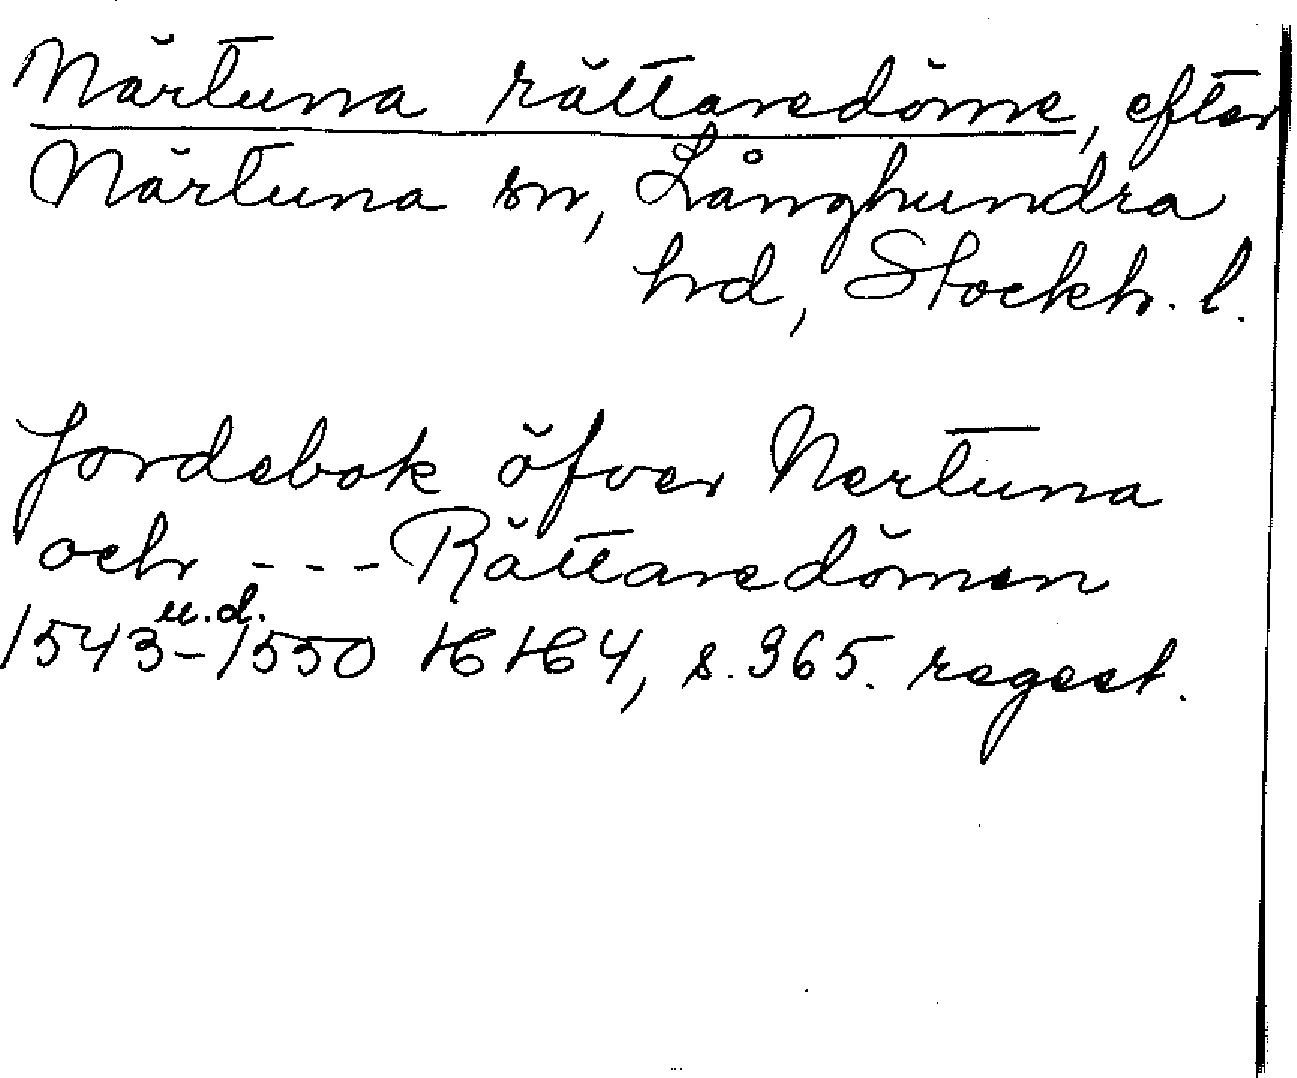 Närtuna rättaredöme, efter
Närtuna sn, Långhundra
hd, Stockh. l.
Jordebok öfver Nertuna
och --- Rättaredömen
u.d.
1543-1550 HH 4, s. 365. regest.